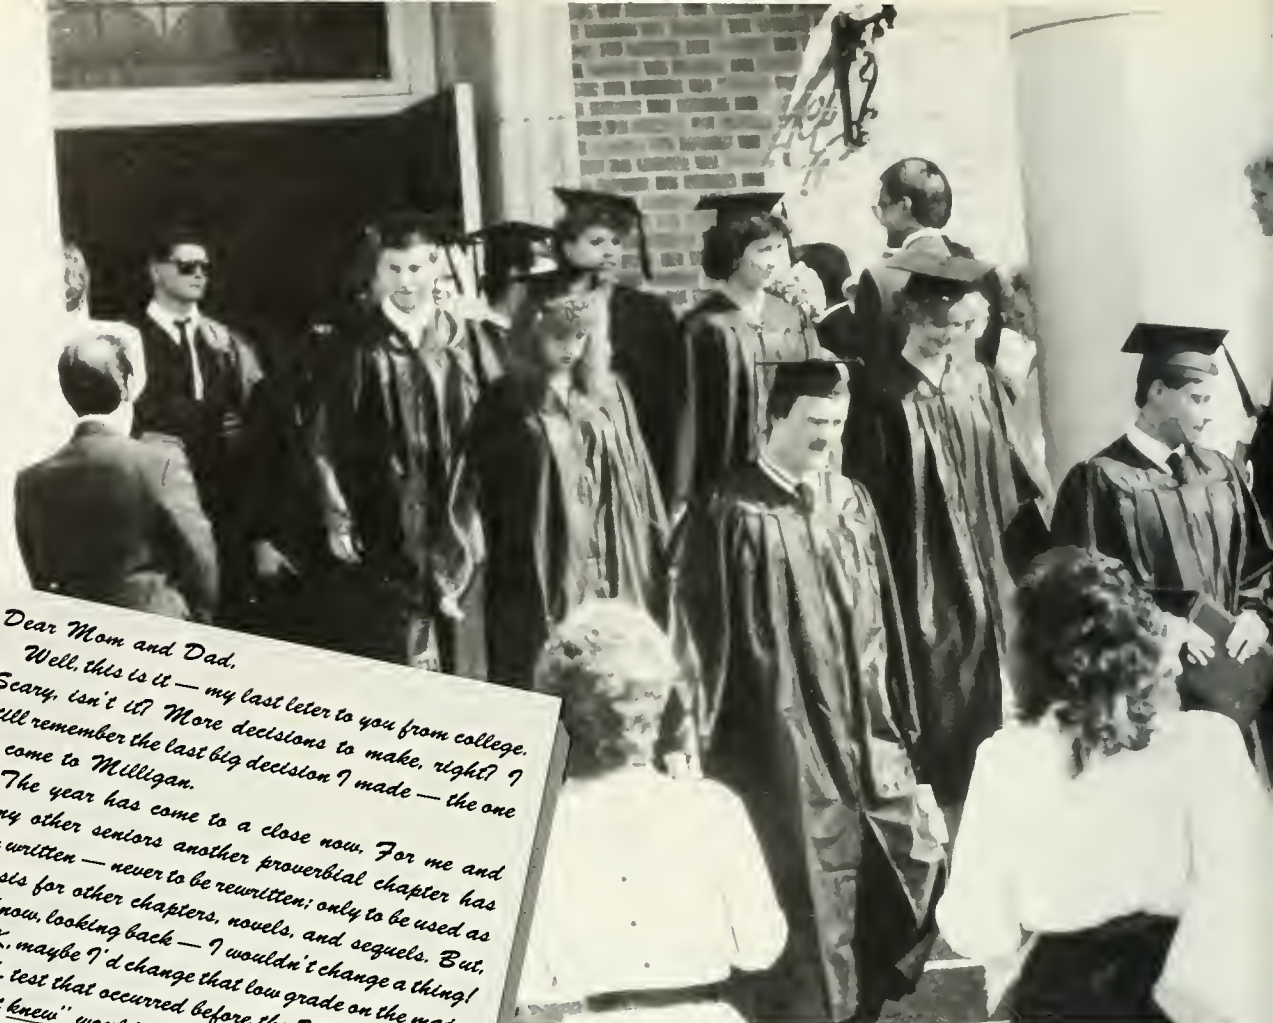 Dear Mom and Dad,
Well, this is it — my last leter to you from college.
Scary, isn't it? More decisions to make, right? I
remember the last big decision I made — the one
come to Milligan.
The year has come to a close now. For me and
other seniors another proverbial chapter has
written — never to be rewritten; only to be used as
for other chapters, novels, and sequels. But,
now, looking back — I wouldn't change a thing!
maybe I'd change that low grade on the
test that occurred before the
knew"